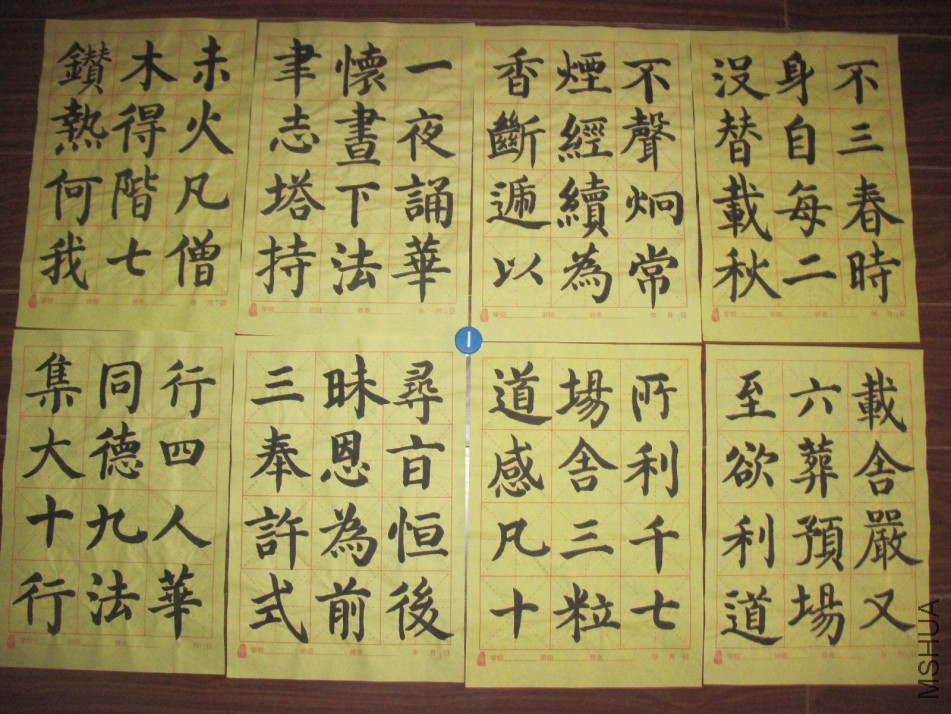 鑽木未
熱得火
何階凡
我七僧
聿懷一
志晝夜
塔下誦
持法華
香煙不
斷經聲
遞續炯
以為常
沒身不
替自三
載每春
秋二時
集同行
大德四
十九人
行法華
三昧尋
奉恩旨
許為恒
式前後
道場所
感舍利
凡三千
十粒七
至六載
欲葬舍
利預嚴
道場又
MSHUA